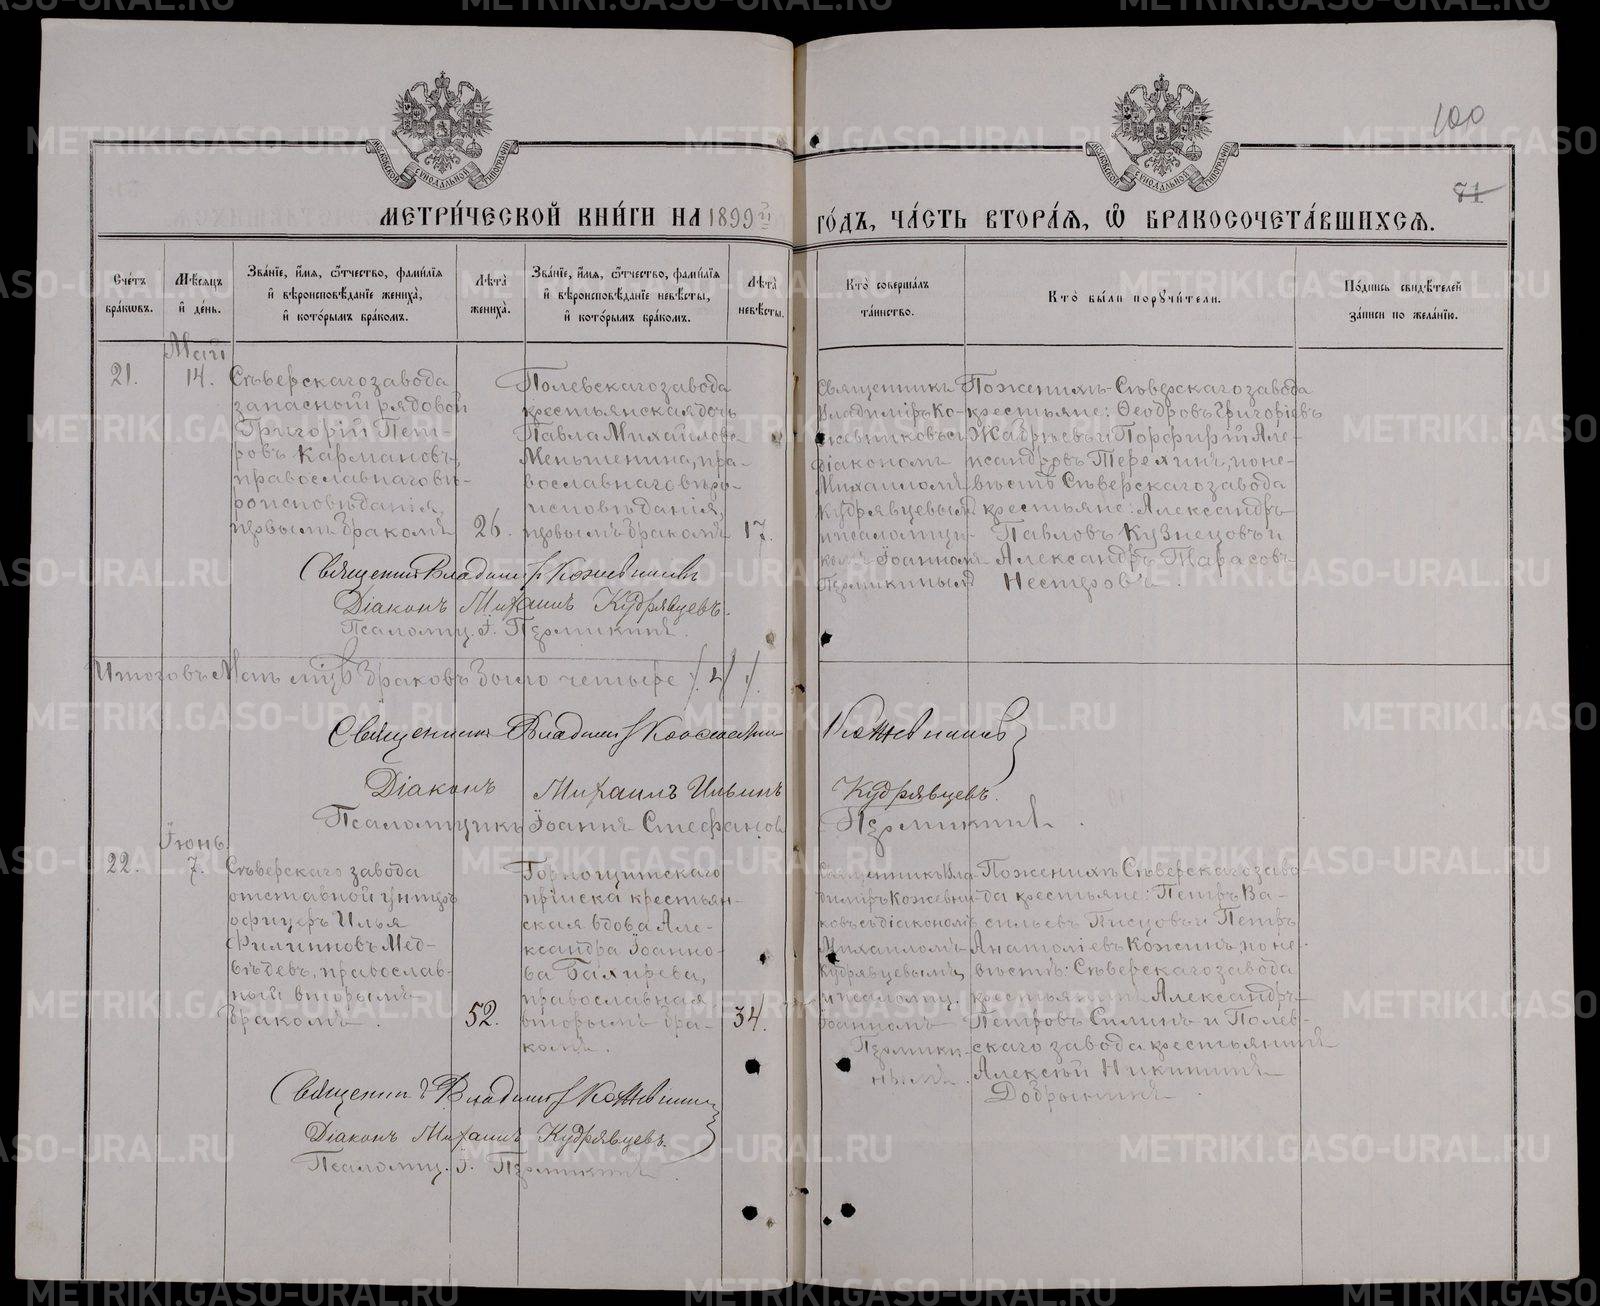 100
71
МОСКОВСКОЙ СѴНОДАЛЬНОЙ ТИПОГРАФІИ
МОСКОВСКОЙ СѴНОДАЛЬНОЙ ТИПОГРАФІИ
МЕТРИ́ЧЕСКОЙ КНИ́ГИ НА 1899й ГО́ДЪ, ЧА́СТЬ ВТОРА́Ѧ, Ѽ БРАКОСОЧЕТА́ВШИХСѦ.
Сче́тъ бра́кѡвъ.
Мѣ́сѧцъ и҆ де́нь.
Зва́нїе, и҆́мѧ, ѻ҆́тчество, фами́лїѧ и҆ вѣроисповѣ́данїе жениха̀, и҆ кото́рымъ бра́комъ.
Лѣ́та жениха̀.
Зва́нїе, и҆́мѧ, ѻ҆́тчество, фами́лїѧ и҆ вѣроисповѣ́данїе невѣ́сты, и҆ кото́рымъ бра́комъ.
Лѣ́та невѣ́сты.
Кто̀ соверша́лъ та́инство.
Кто̀ бы́ли порꙋчи́тели.
По́дпись свидѣ́телей за́писи по жела́нїю.
21.
Май
14.
Сѣверскаго завода
запасной рядовой
Григорій Пет-
ровъ Кармановъ,
православнаго вѣ-
роисповѣданія,
первымъ бракомъ
26.
Полевскаго завода
крестьянская дочь
Павла Михайлова
Меньшенина, пра-
вославнаго вѣро-
исповѣданія,
первымъ бракомъ
17.
Священникъ
Владиміръ Ко-
жевниковъ съ
діакономъ
Михаиломъ
Кудрявцевымъ
и псаломщи-
комъ Іоанномъ
Пермикинымъ
По женихѣ: Сѣверскаго завода
крестьяне: Ѳеодоръ Григорьевъ
и Порфирій Але-
ксандровъ Терехинъ, по не-
вѣстѣ Сѣверскаго завода
крестьяне: Александръ
Павловъ Кузнецовъ и
Александръ Тарасовъ
Нестеровъ.
Священникъ Владиміръ Кожевниковъ
Діаконъ Михаилъ Кудрявцевъ.
Псаломщ. І. Пермикинъ.
Итого въ Маѣ м-цѣ браковъ было четыре /4/.
Священникъ Владиміръ Кожевниковъ
Діаконъ Михаилъ Ильинъ Кудрявцевъ.
Псаломщикъ Іоаннъ Стефановъ Пермикинъ.
Іюнь.
22.
7.
Сѣверскаго завода
отставной унтеръ
офицеръ Илья
Филипповъ Мед-
вѣдевъ, православ-
ный вторымъ
бракомъ.
52.
Горнощитскаго
пріиска крестьян-
ская вдова Але-
ксандра Іоанно-
ва Бахирева,
православная
вторымъ бра-
комъ.
34.
Священникъ Вла-
диміръ Кожевни-
ковъ съ діакономъ
Михаиломъ
Кудрявцевымъ
и псаломщ.
Іоанномъ
Пермики-
нымъ.
По женихѣ Сѣверскаго заво-
да крестьяне: Петръ Ва-
сильевъ Писцовъ и Петръ
Анатоліевъ Кожинъ, по не-
вѣстѣ: Сѣверскаго завода
крестьянинъ Александръ
Петровъ Силинъ и Полев-
скаго завода крестьянинъ
Алексѣй Никитинъ
Добрынинъ.
Священникъ Владиміръ Кожевниковъ
Діаконъ Михаилъ Кудрявцевъ.
Псаломщ. І. Пермикинъ.
METRIKI.GASO-URAL.RU